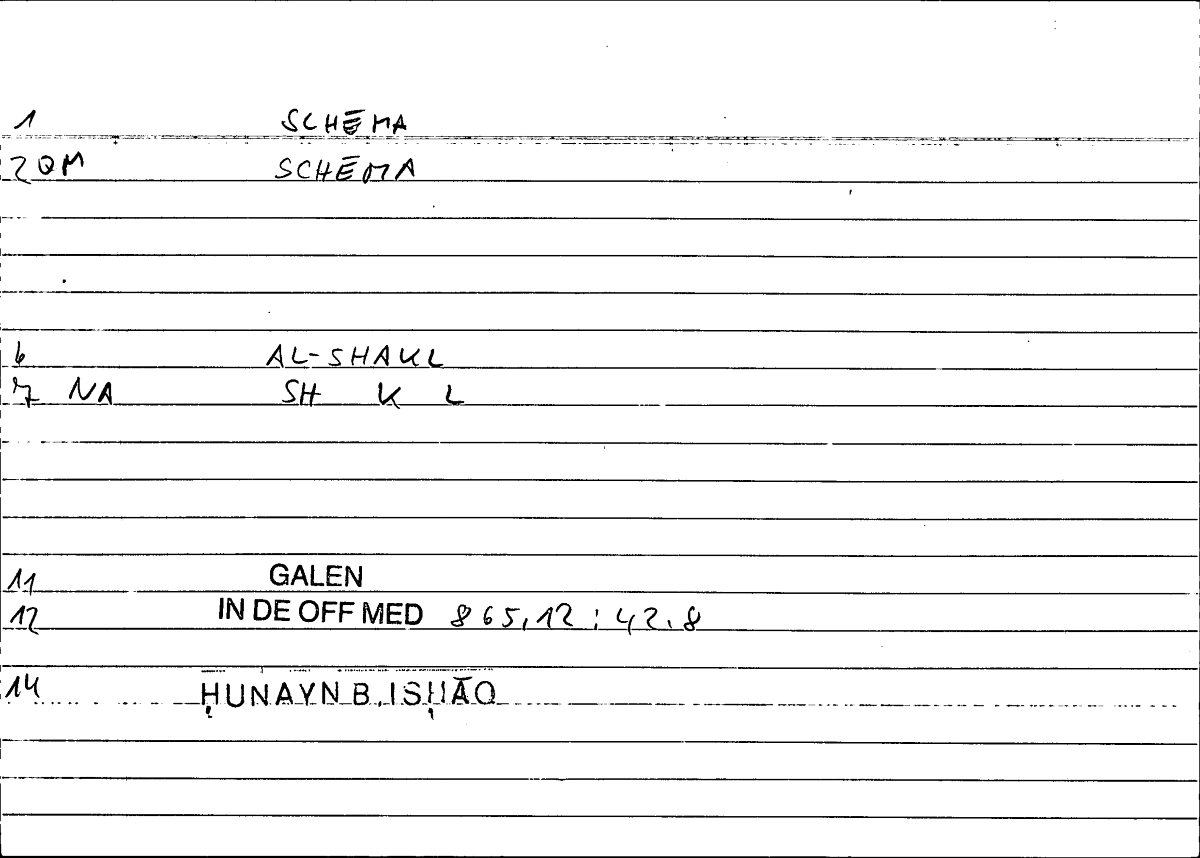 1 SCHEMA
2 QM SCHEMA
6 AL-SHAKL
7 NA SH K L
11 GALEN
12 IN DE OFF MED 865,12 : 42.8
14 ḤUNAYN B. ISḤĀQ